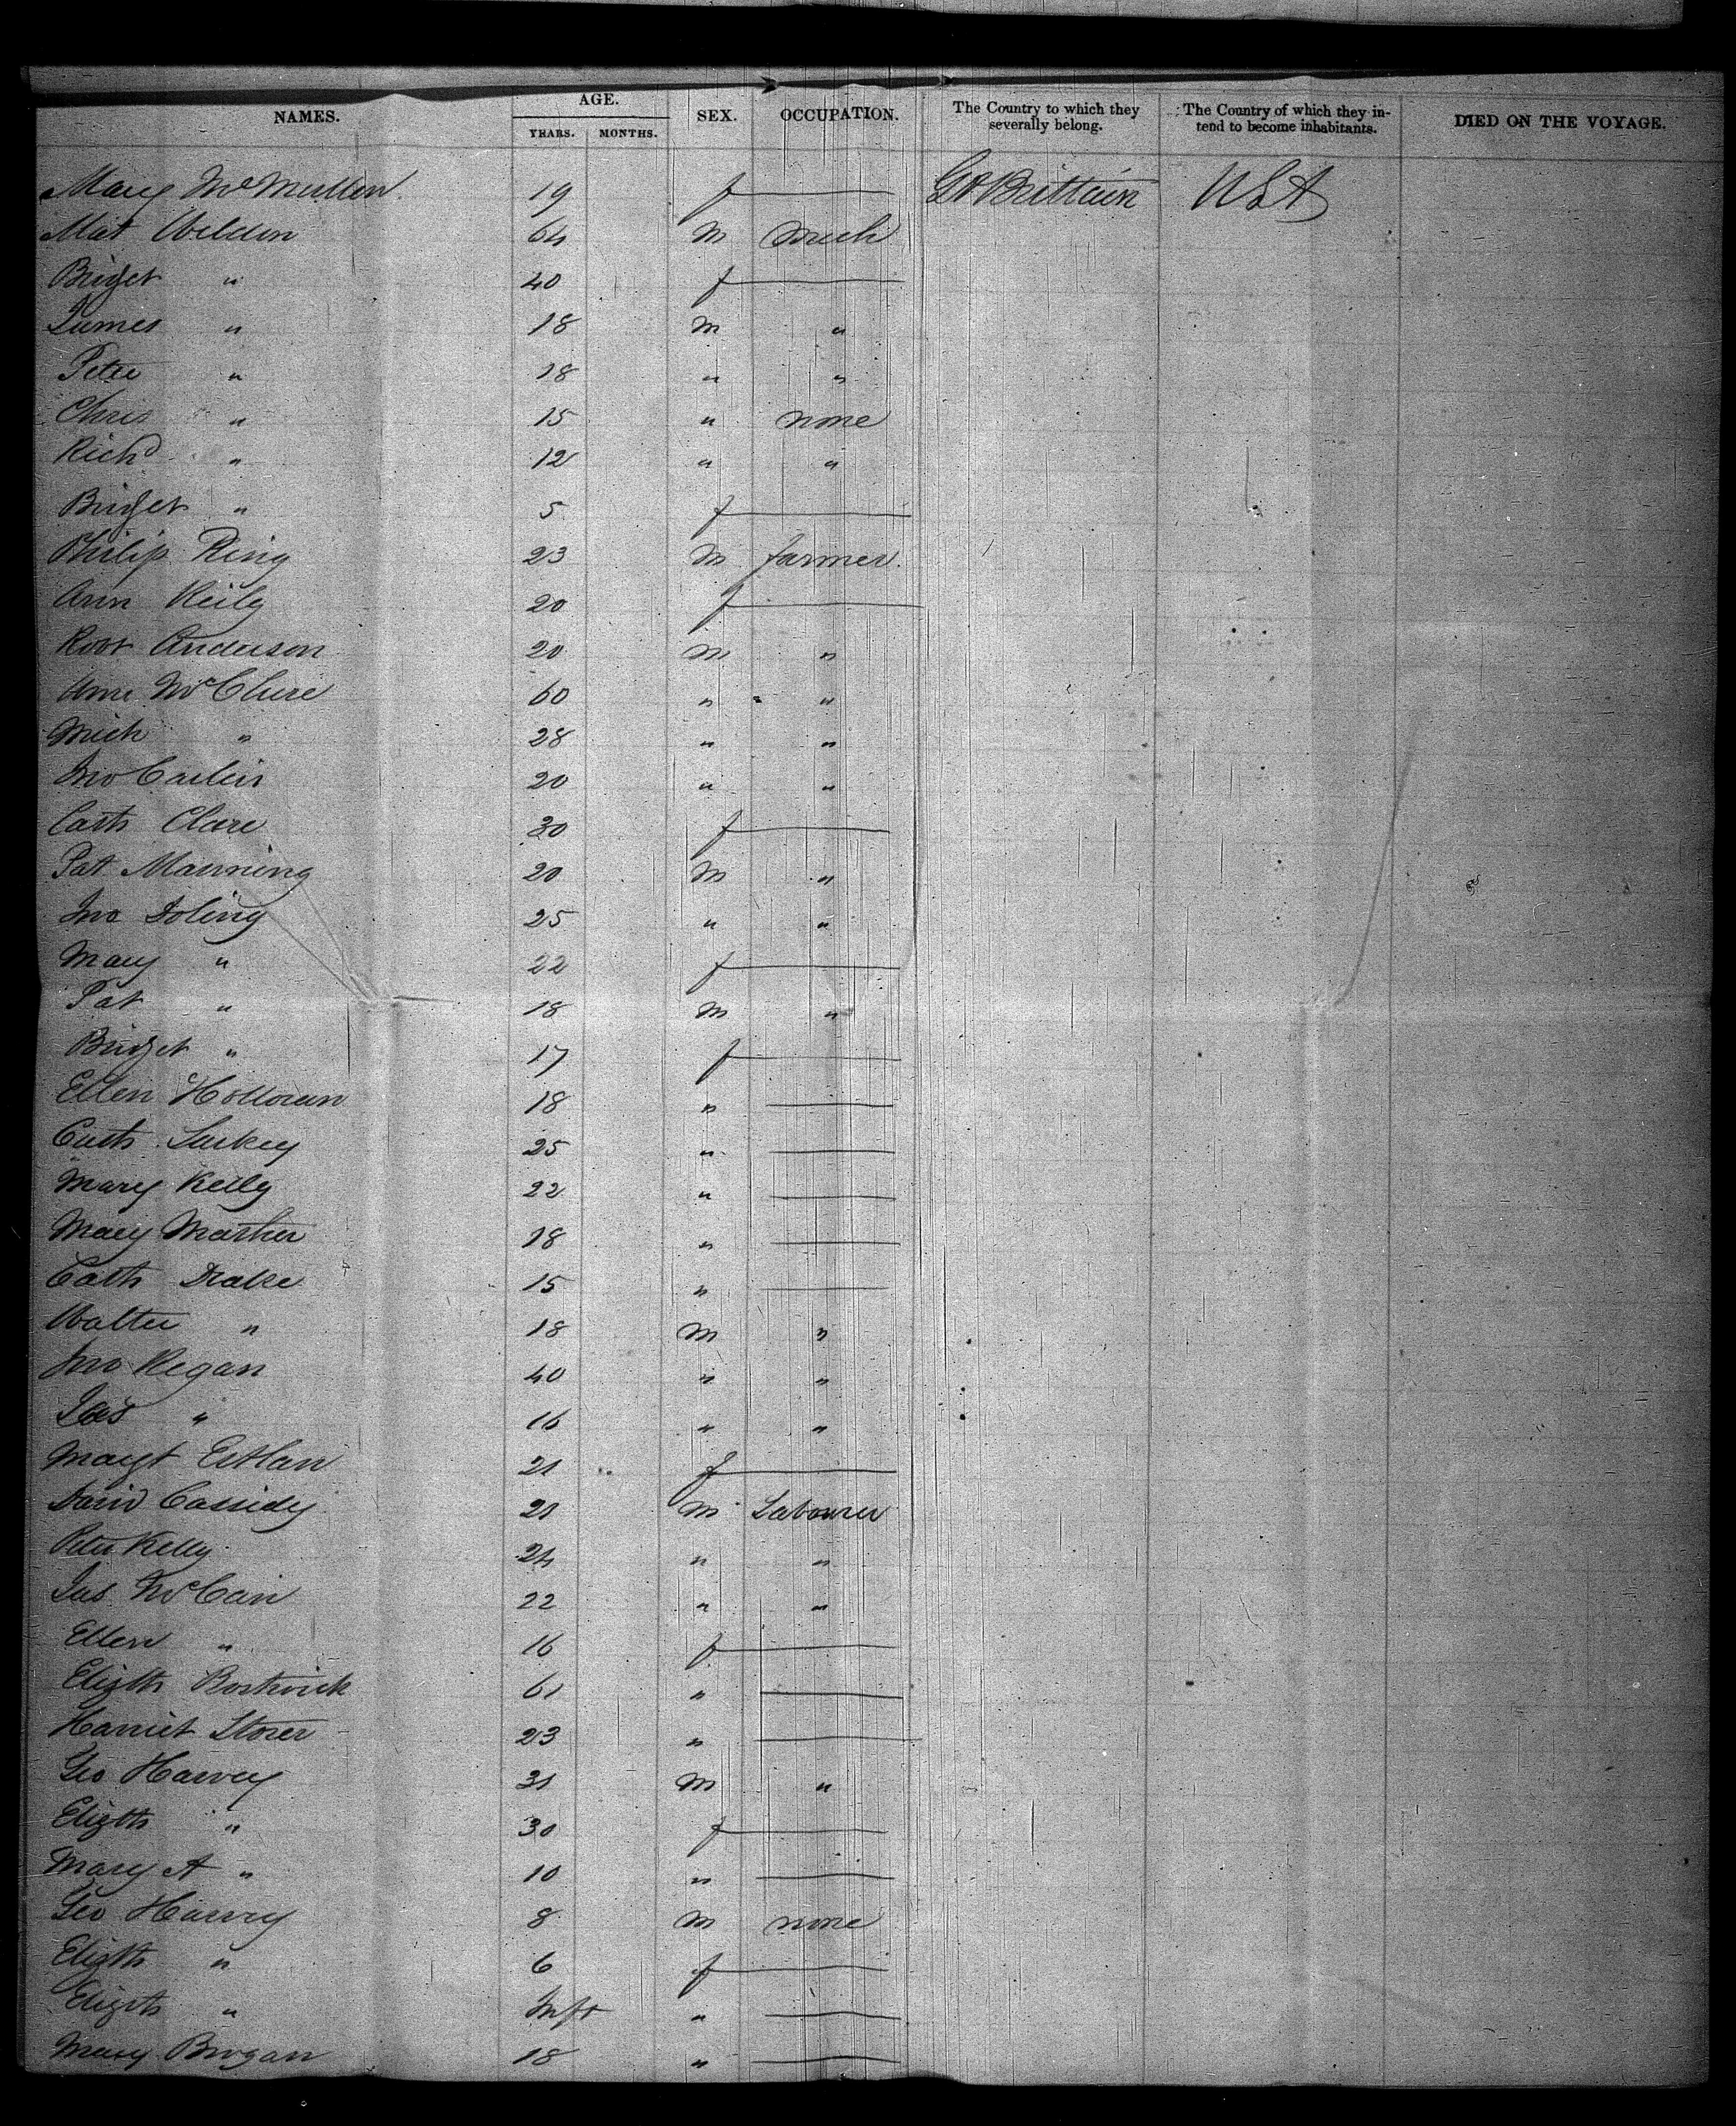 NAMES. AGE. YEARS. MONTHS. SEX. OCCUPATION. The Country to which they severally belong. The Country of which they intend to become inhabitants. DIED ON THE VOYAGE.
Mary McMullen 19 f — Gt Brittain USA
Mat Weldon 64 M Mech
Bridget " 40 f —
James " 18 M "
Peter " 18 " "
Chris " 15 " none
Richd " 12 " "
Bridget " 5 f —
Philip Ring 23 M farmer
Ann Keily 20 f —
Robt Anderson 20 M "
McClure 60 " "
Mich " 28 " "
Jno Carlin 20 " "
Cath Clare 30 f —
Pat Manning 20 M "
Jno Doling 25 " "
Mary " 22 f —
Pat " 18 M "
Bridget " 17 f —
Ellen Holloran 18 " —
Cath Larkey 25 " —
Mary Keily 22 " —
Mary 18 " —
Cath Drake 15 " —
Walter " 18 M "
Jno Regan 40 " "
Jas " 16 " "
Margt 21 f —
David Cassidy 21 M Labourer
Peter Kelly 24 " "
Jas McCain 22 " "
Ellen " 16 f —
Elizth Bostwick 61 " —
Harriet Storer 23 " —
Geo Harvey 31 M "
Elizth " 30 f —
Mary A " 10 " —
Geo Harvey 8 M none
Elizth " 6 f —
Elizth " Inft " —
Mary Brogan 18 " —